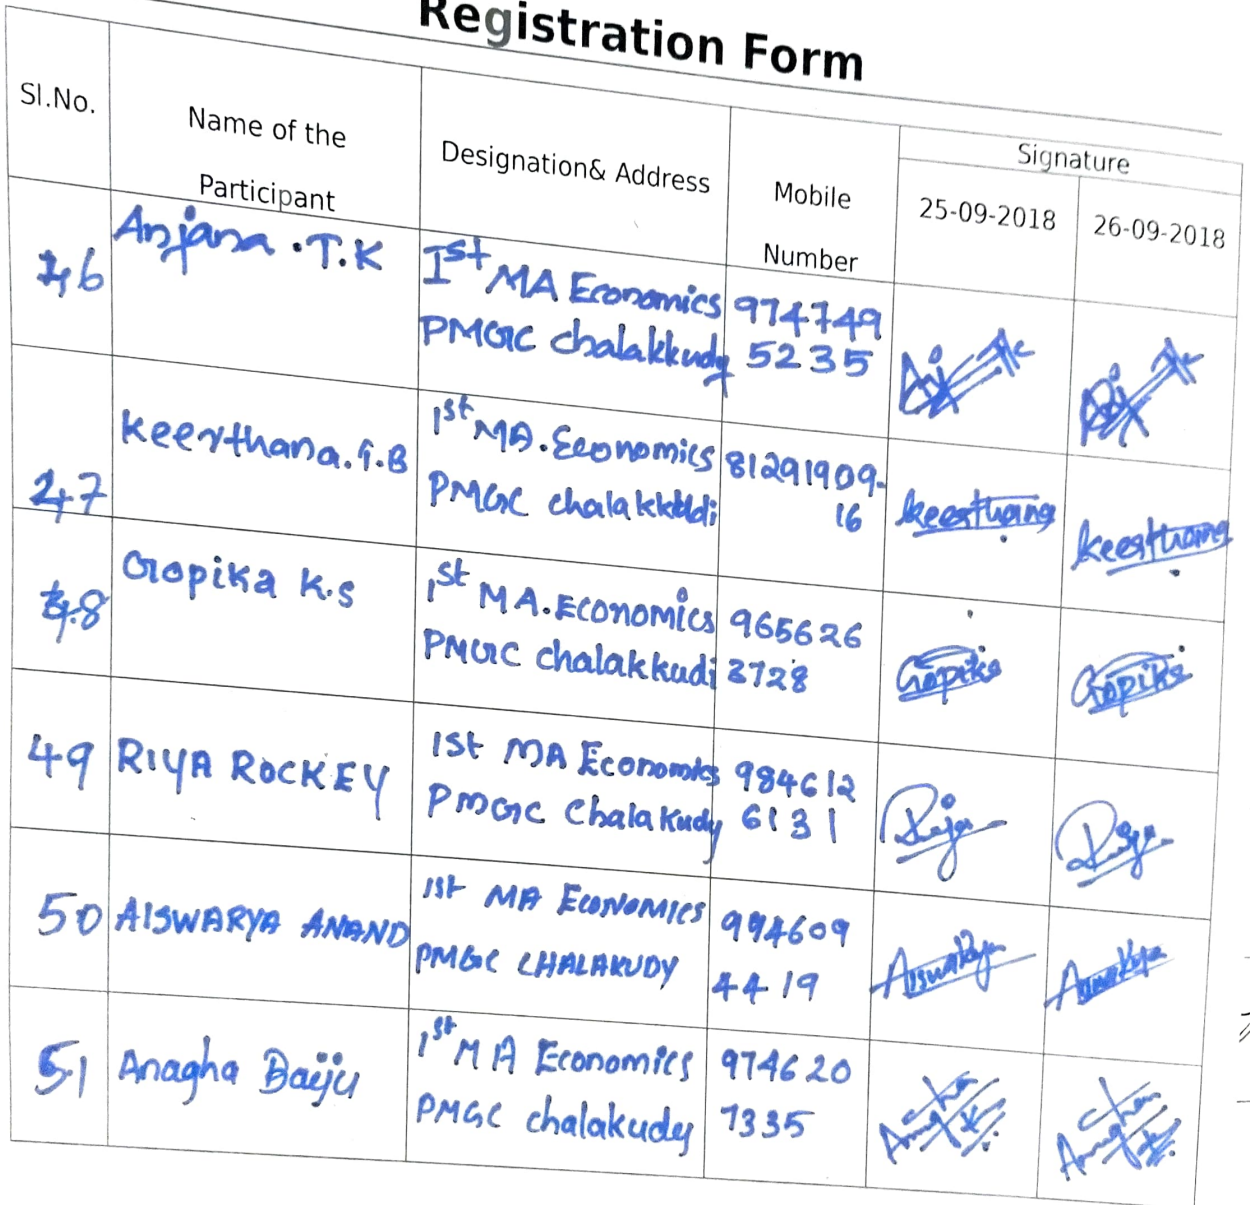 Registration Form
Sl.No.
Name of the
Participant
Designation& Address
Mobile
Number
Signature
25-09-2018
26-09-2018
46
Anjana .T.K
Ist MA Economics
PMGC chalakkudy
974749
5235
47
Keerthana.G.B
1st MA.Economics
PMGC chalakkudi
81291909-
16
Keerthana
Keerthana
48
Gopika K.S
1st MA.Economics
PMGC chalakkudi
965626
3728
Gopika
Gopika
49
RIYA ROCKEY
1st MA Economics
PMGC Chalakudy
984612
6131
Riya
Riya
50
AISWARYA ANAND
1st MA ECONOMICS
PMGC CHALAKUDY
994609
4419
Aiswarya
Aiswarya
51
Anagha Baiju
1st MA Economics
PMGC chalakudy
974620
7335